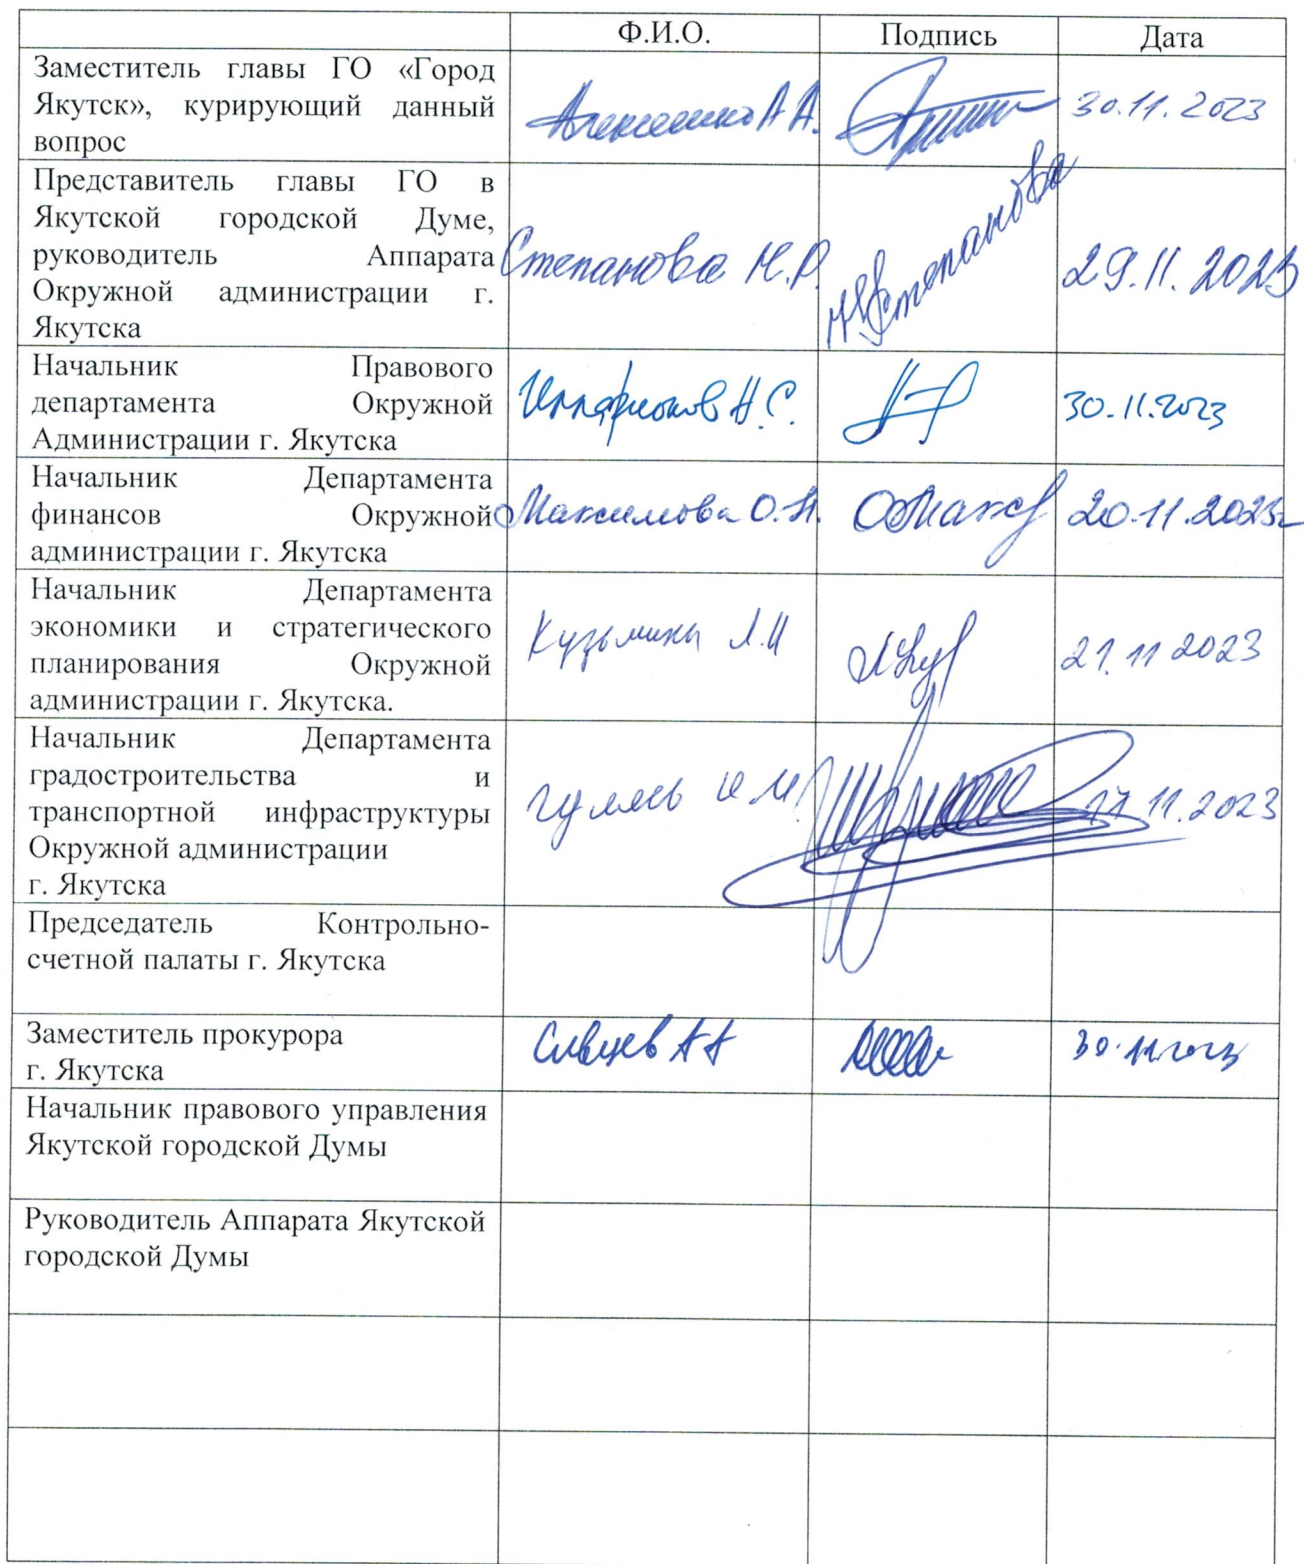 Ф.И.О. Подпись Дата
Заместитель главы ГО «Город
Якутск», курирующий данный
вопрос
А.А. 30.11.2023
Представитель главы ГО в
Якутской городской Думе,
руководитель Аппарата
Окружной администрации г.
Якутска
Степанова Н.Р. Степанова 29.11.2023
Начальник Правового
департамента Окружной
Администрации г. Якутска
Иннаритонов Н.С. 30.11.2023
Начальник Департамента
финансов Окружной
администрации г. Якутска
Максимова О.Н. 20.11.2023г
Начальник Департамента
экономики и стратегического
планирования Окружной
администрации г. Якутска.
Кузьмина Л.И 21.11 2023
Начальник Департамента
градостроительства и
транспортной инфраструктуры
Окружной администрации
г. Якутска
17.11.2023
Председатель Контрольно-
счетной палаты г. Якутска
Заместитель прокурора
г. Якутска
Сивцев А А 30.11.2023
Начальник правового управления
Якутской городской Думы
Руководитель Аппарата Якутской
городской Думы